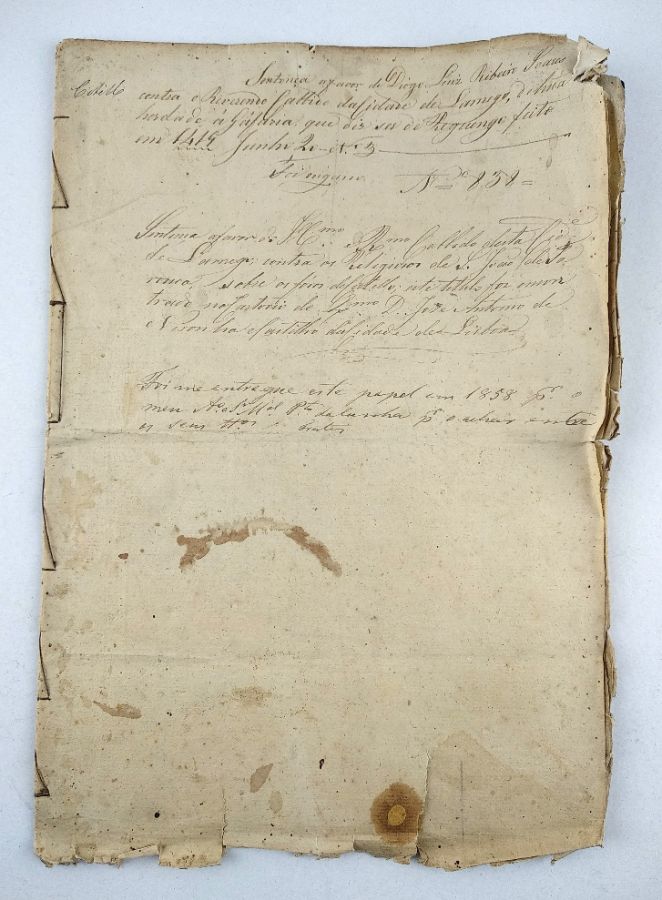 Sentença afavor de Diogo Luiz Ribeiro Soares
contra o Reverendo Cabbido da Cidade de Lamego, de hua
herdade á Gafaria, que diz ser de Reguengo feito
em 1419 Junho 2. N.º 3
Foi engano N.º 838
Sentença afavor do Ill.mo R.mo Cabbido desta Cid.e
de Lamego; contra os Religiozos de S. João de Ta
rouca, sobre os foros este titulo foi encon
trado no Cartorio do Ex.mo D. José Antonio de
Noronha da Cidade de Lisboa
Foi me entregue este papel em 1858 p.r o
meu Am.o Sr. M.el da Cunha p.r o achar entre
os seus